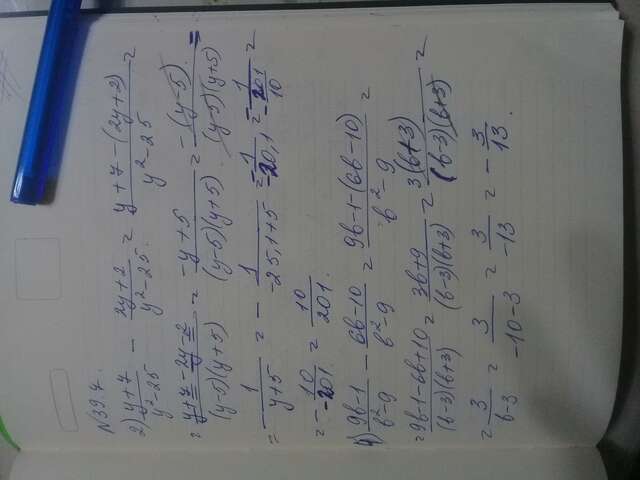 N39.7.
2) y+7/y²-25 - 2y+2/y²-25 = y+7-(2y+2)/y²-25 =
= y+7-2y-2/(y-5)(y+5) = -y+5/(y-5)(y+5) = -(y-5)/(y-5)(y+5) =
= - 1/y+5 = - 1/-25,1+5 = - 1/-20,1 = - 1/-201/10 =
= - 10/-201 = 10/201.
4) 9b-1/b²-9 - 6b-10/b²-9 = 9b-1-(6b-10)/b²-9 =
= 9b-1-6b+10/(b-3)(b+3) = 3b+9/(b-3)(b+3) = 3(b+3)/(b-3)(b+3) =
= 3/b-3 = 3/-10-3 = 3/-13 = - 3/13.